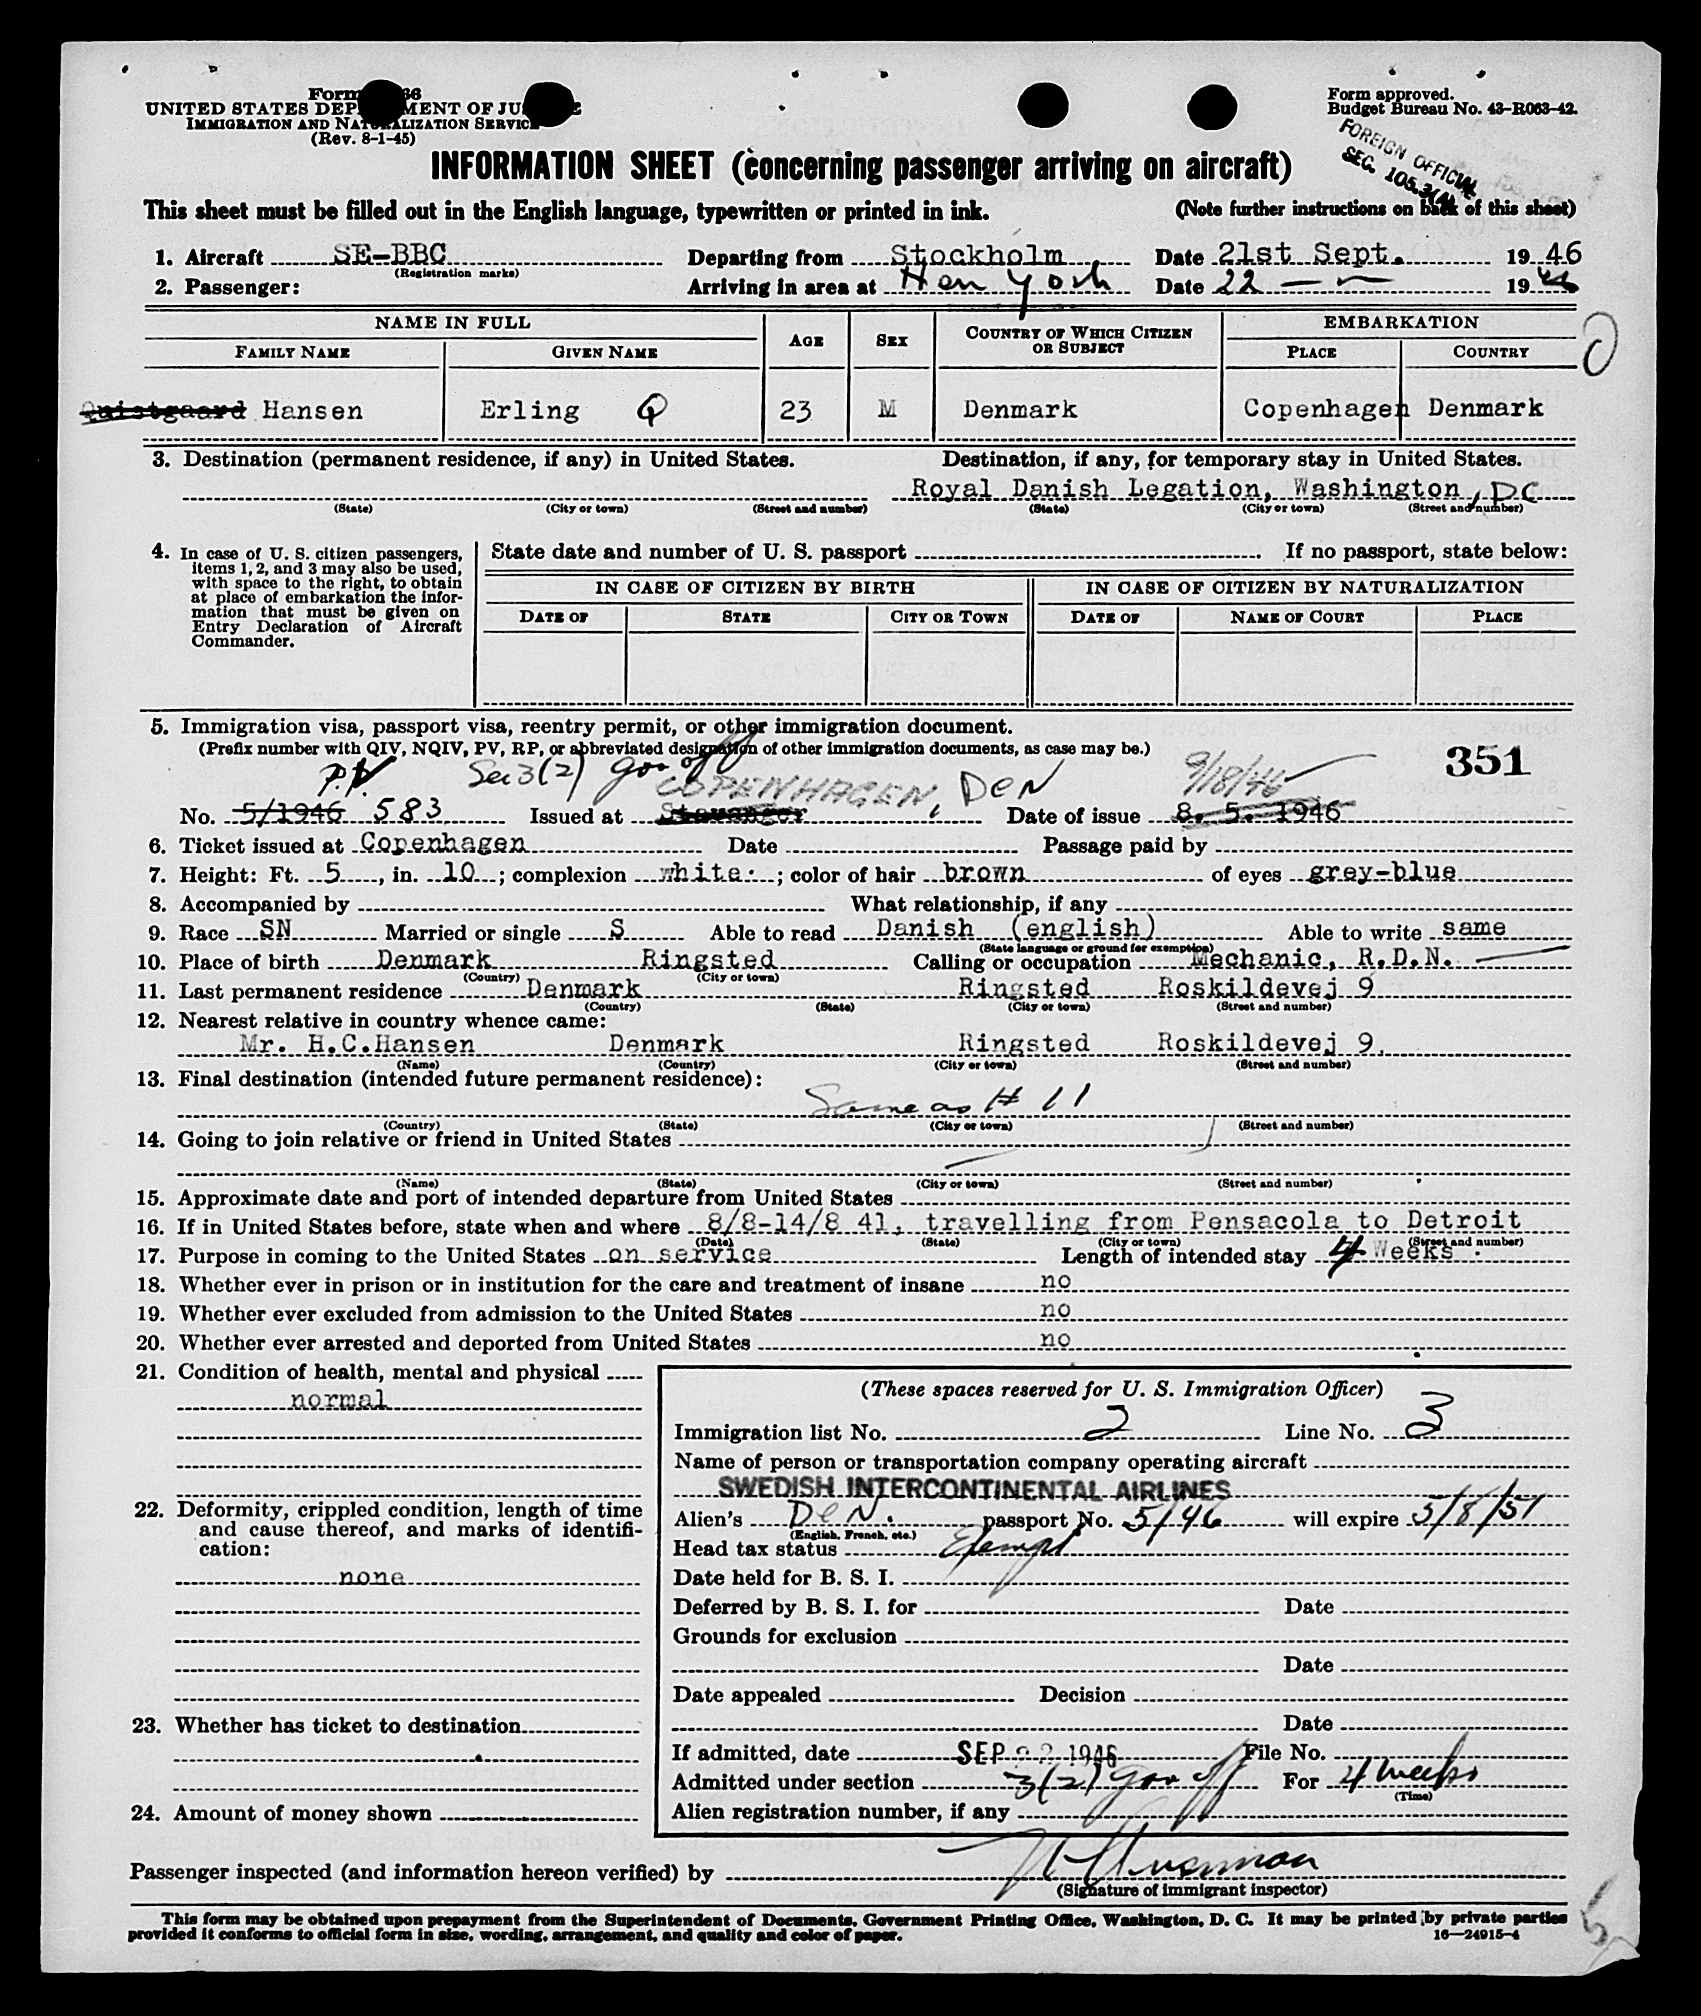 Form 66
UNITED STATES DEPARTMENT OF JUSTICE
IMMIGRATION AND NATURALIZATION SERVICE
(Rev. 8-1-45)
Form approved.
Budget Bureau No. 43-R063-42.
FOREIGN OFFICIAL
SEC. 105.3(A)
INFORMATION SHEET (concerning passenger arriving on aircraft)
This sheet must be filled out in the English language, typewritten or printed in ink. (Note further instructions on back of this sheet)
1. Aircraft SE-BBC Departing from Stockholm Date 21st Sept. 19 46
(Registration marks)
2. Passenger: Arriving in area at New York Date 22 — — 19 46
NAME IN FULL AGE SEX COUNTRY OF WHICH CITIZEN OR SUBJECT EMBARKATION
FAMILY NAME GIVEN NAME PLACE COUNTRY
Quistgaard Hansen Erling Q 23 M Denmark Copenhagen Denmark
3. Destination (permanent residence, if any) in United States. Destination, if any, for temporary stay in United States.
Royal Danish Legation, Washington, DC
(State) (City or town) (Street and number) (State) (City or town) (Street and number)
4. In case of U. S. citizen passengers, items 1, 2, and 3 may also be used, with space to the right, to obtain at place of embarkation the information that must be given on Entry Declaration of Aircraft Commander.
State date and number of U. S. passport If no passport, state below:
IN CASE OF CITIZEN BY BIRTH IN CASE OF CITIZEN BY NATURALIZATION
DATE OF STATE CITY OR TOWN DATE OF NAME OF COURT PLACE
5. Immigration visa, passport visa, reentry permit, or other immigration document.
(Prefix number with QIV, NQIV, PV, RP, or abbreviated designation of other immigration documents, as case may be.)
351
P.V. Sec 3(2) gov off COPENHAGEN, DEN 9/18/46
No. 5/1946 583 Issued at Stavanger Date of issue 8. 5. 1946
6. Ticket issued at Copenhagen Date Passage paid by
7. Height: Ft. 5, in. 10; complexion white; color of hair brown of eyes grey-blue
8. Accompanied by What relationship, if any
9. Race SN Married or single S Able to read Danish (english) Able to write same
(State language or ground for exemption)
10. Place of birth Denmark Ringsted Calling or occupation Mechanic, R.D.N.
(Country) (City or town)
11. Last permanent residence Denmark Ringsted Roskildevej 9
(Country) (State) (City or town) (Street and number)
12. Nearest relative in country whence came:
Mr. H.C.Hansen Denmark Ringsted Roskildevej 9.
(Name) (Country) (City or town) (Street and number)
13. Final destination (intended future permanent residence):
Same as # 11
(Country) (State) (City or town) (Street and number)
14. Going to join relative or friend in United States
(Name) (State) (City or town) (Street and number)
15. Approximate date and port of intended departure from United States
16. If in United States before, state when and where 8/8-14/8 41, travelling from Pensacola to Detroit
(Date) (State) (City or town) (Street and number)
17. Purpose in coming to the United States on service Length of intended stay 4 Weeks.
18. Whether ever in prison or in institution for the care and treatment of insane no
19. Whether ever excluded from admission to the United States no
20. Whether ever arrested and deported from United States no
21. Condition of health, mental and physical
normal
22. Deformity, crippled condition, length of time and cause thereof, and marks of identification:
none
23. Whether has ticket to destination
24. Amount of money shown
(These spaces reserved for U. S. Immigration Officer)
Immigration list No. 2 Line No. 3
Name of person or transportation company operating aircraft
SWEDISH INTERCONTINENTAL AIRLINES
Alien's DEN. passport No. 5/46 will expire 5/8/51
(English, French, etc.)
Head tax status Exempt
Date held for B. S. I.
Deferred by B. S. I. for Date
Grounds for exclusion
Date
Date appealed Decision
Date
If admitted, date SEP 22 1946 File No.
Admitted under section 3(2) gov off For 4 weeks
(Time)
Alien registration number, if any
Passenger inspected (and information hereon verified) by
(Signature of immigrant inspector)
This form may be obtained upon prepayment from the Superintendent of Documents, Government Printing Office, Washington, D. C. It may be printed by private parties
provided it conforms to official form in size, wording, arrangement, and quality and color of paper. 16—24915-4